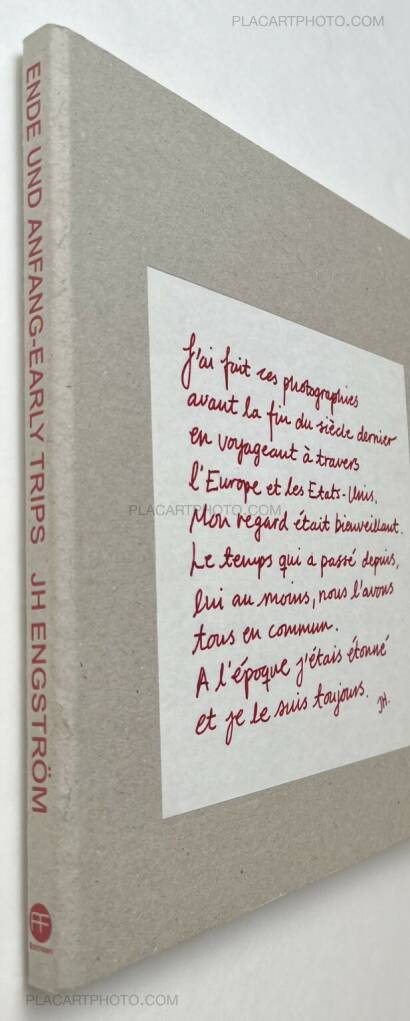 PLACARTPHOTO.COM
PLACARTPHOTO.COM
ENDE UND ANFANG-EARLY TRIPS JH ENGSTRÖM
J'ai fait ces photographies
avant la fin du siècle dernier
en voyageant à travers
l'Europe et les Etats-Unis.
PLACARTPHOTO.COM
Mon regard était bienveillant.
Le temps qui a passé depuis,
lui au moins, nous l'avons
tous en commun.
A l'époque j'étais étonné
et je le suis toujours.
JH.
PLACARTPHOTO.COM